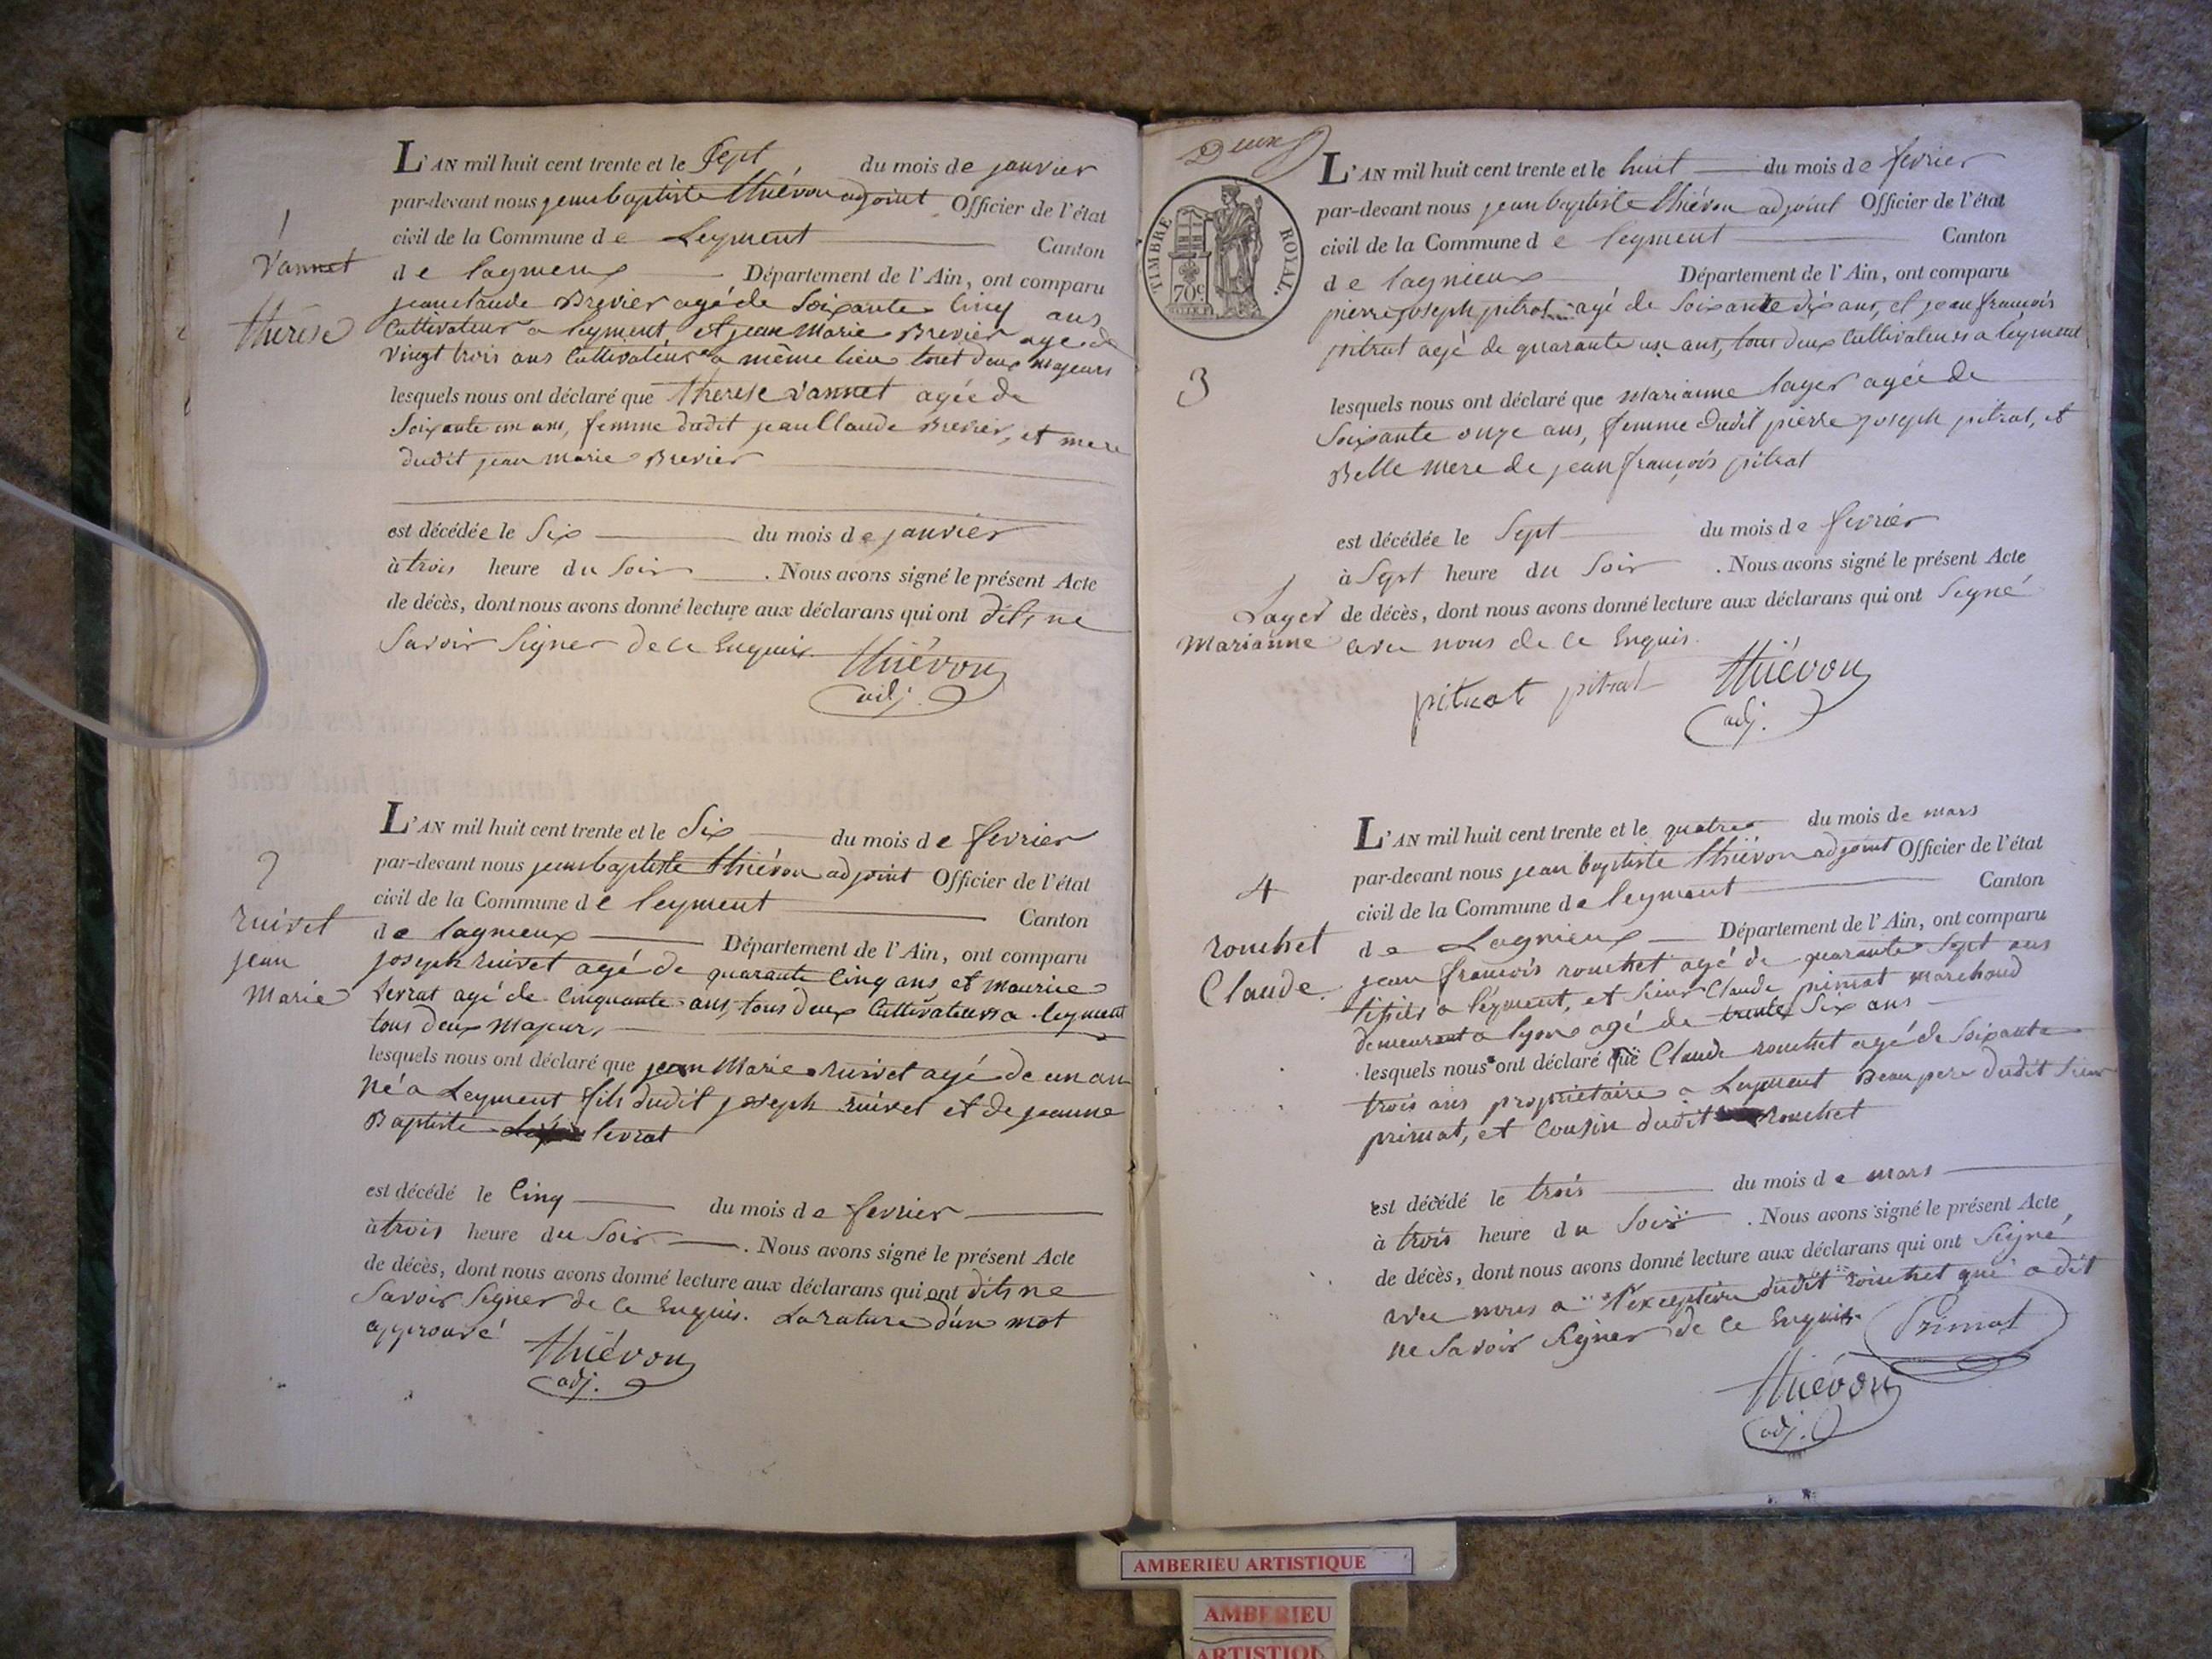 1
Vannet
thérèse
L'AN mil huit cent trente et le Sept du mois de janvier
par-devant nous jean baptiste thiévon adjoint Officier de l'état
civil de la Commune de Leyment Canton
de lagnieux Département de l'Ain, ont comparu
jean claude Brevier agé de Soixante Cinq ans
Cultivateur a leyment et jean Marie Brevier agé de
vingt trois ans Cultivateur a même lieu tout deux majeurs
lesquels nous ont déclaré que therese vannet agée de
Soixante un ans, femme dudit jean Claude Brevier, et mere
dudit jean marie Brevier
est décédée le Six du mois de janvier
à trois heure du Soir . Nous avons signé le présent Acte
de décès, dont nous avons donné lecture aux déclarans qui ont dits ne
Savoir Signer de ce Enquis
thiévon
adj.
2
ruivet
jean
Marie
L'AN mil huit cent trente et le Six du mois de fevrier
par-devant nous jean baptiste thiévon adjoint Officier de l'état
civil de la Commune de leyment Canton
de lagnieux Département de l'Ain, ont comparu
joseph ruivet agé de quarante Cinq ans et maurice
levrat agé de Cinquante ans, tous deux Cultivateurs a leyment
tous deux majeurs
lesquels nous ont déclaré que jean Marie ruivet agé de un an
né a Leyment fils dudit joseph ruivet et de jeanne
Baptiste levrat
est décédé le Cinq du mois de fevrier
à trois heure du Soir . Nous avons signé le présent Acte
de décès, dont nous avons donné lecture aux déclarans qui ont dits ne
Savoir Signer de ce Enquis. La rature d'un mot
approuvé
thiévon
adj.
Deux
TIMBRE ROYAL.
70c
3
Layer
Marianne
L'AN mil huit cent trente et le huit du mois de fevrier
par-devant nous jean baptiste thiévon adjoint Officier de l'état
civil de la Commune de leyment Canton
de lagnieux Département de l'Ain, ont comparu
pierre joseph pitrat agé de Soixante dix ans, et jean françois
pitrat agé de quarante un ans, tous deux Cultivateurs a leyment
lesquels nous ont déclaré que Marianne layer agée de
Soixante onze ans, femme dudit pierre joseph pitrat, et
Belle mere de jean françois pitrat
est décédée le Sept du mois de fevrier
à Sept heure du Soir . Nous avons signé le présent Acte
de décès, dont nous avons donné lecture aux déclarans qui ont Signé
avec nous de ce Enquis.
pitrat pitrat thiévon
adj.
4
rouchet
Claude
L'AN mil huit cent trente et le quatre du mois de mars
par-devant nous jean baptiste thiévon adjoint Officier de l'état
civil de la Commune de leyment Canton
de Lagnieux Département de l'Ain, ont comparu
jean françois rouchet agé de quarante Sept ans
a léyment, et Sieur Claude primat marchand
demeurant a lyon agé de trente Six ans
lesquels nous ont déclaré que Claude rouchet agé de Soixante
trois ans propriétaire a Leyment Beau pere dudit Sieur
primat, et Cousin dudit Rouchet
est décédé le trois du mois de mars
à trois heure du Soir . Nous avons signé le présent Acte
de décès, dont nous avons donné lecture aux déclarans qui ont Signé
avec nous a l'exception dudit rouchet qui a dit
ne Savoir Signer de ce Enquis.
Primat
thiévon
adj.
AMBERIEU ARTISTIQUE
AMBERIEU
ARTISTIQU